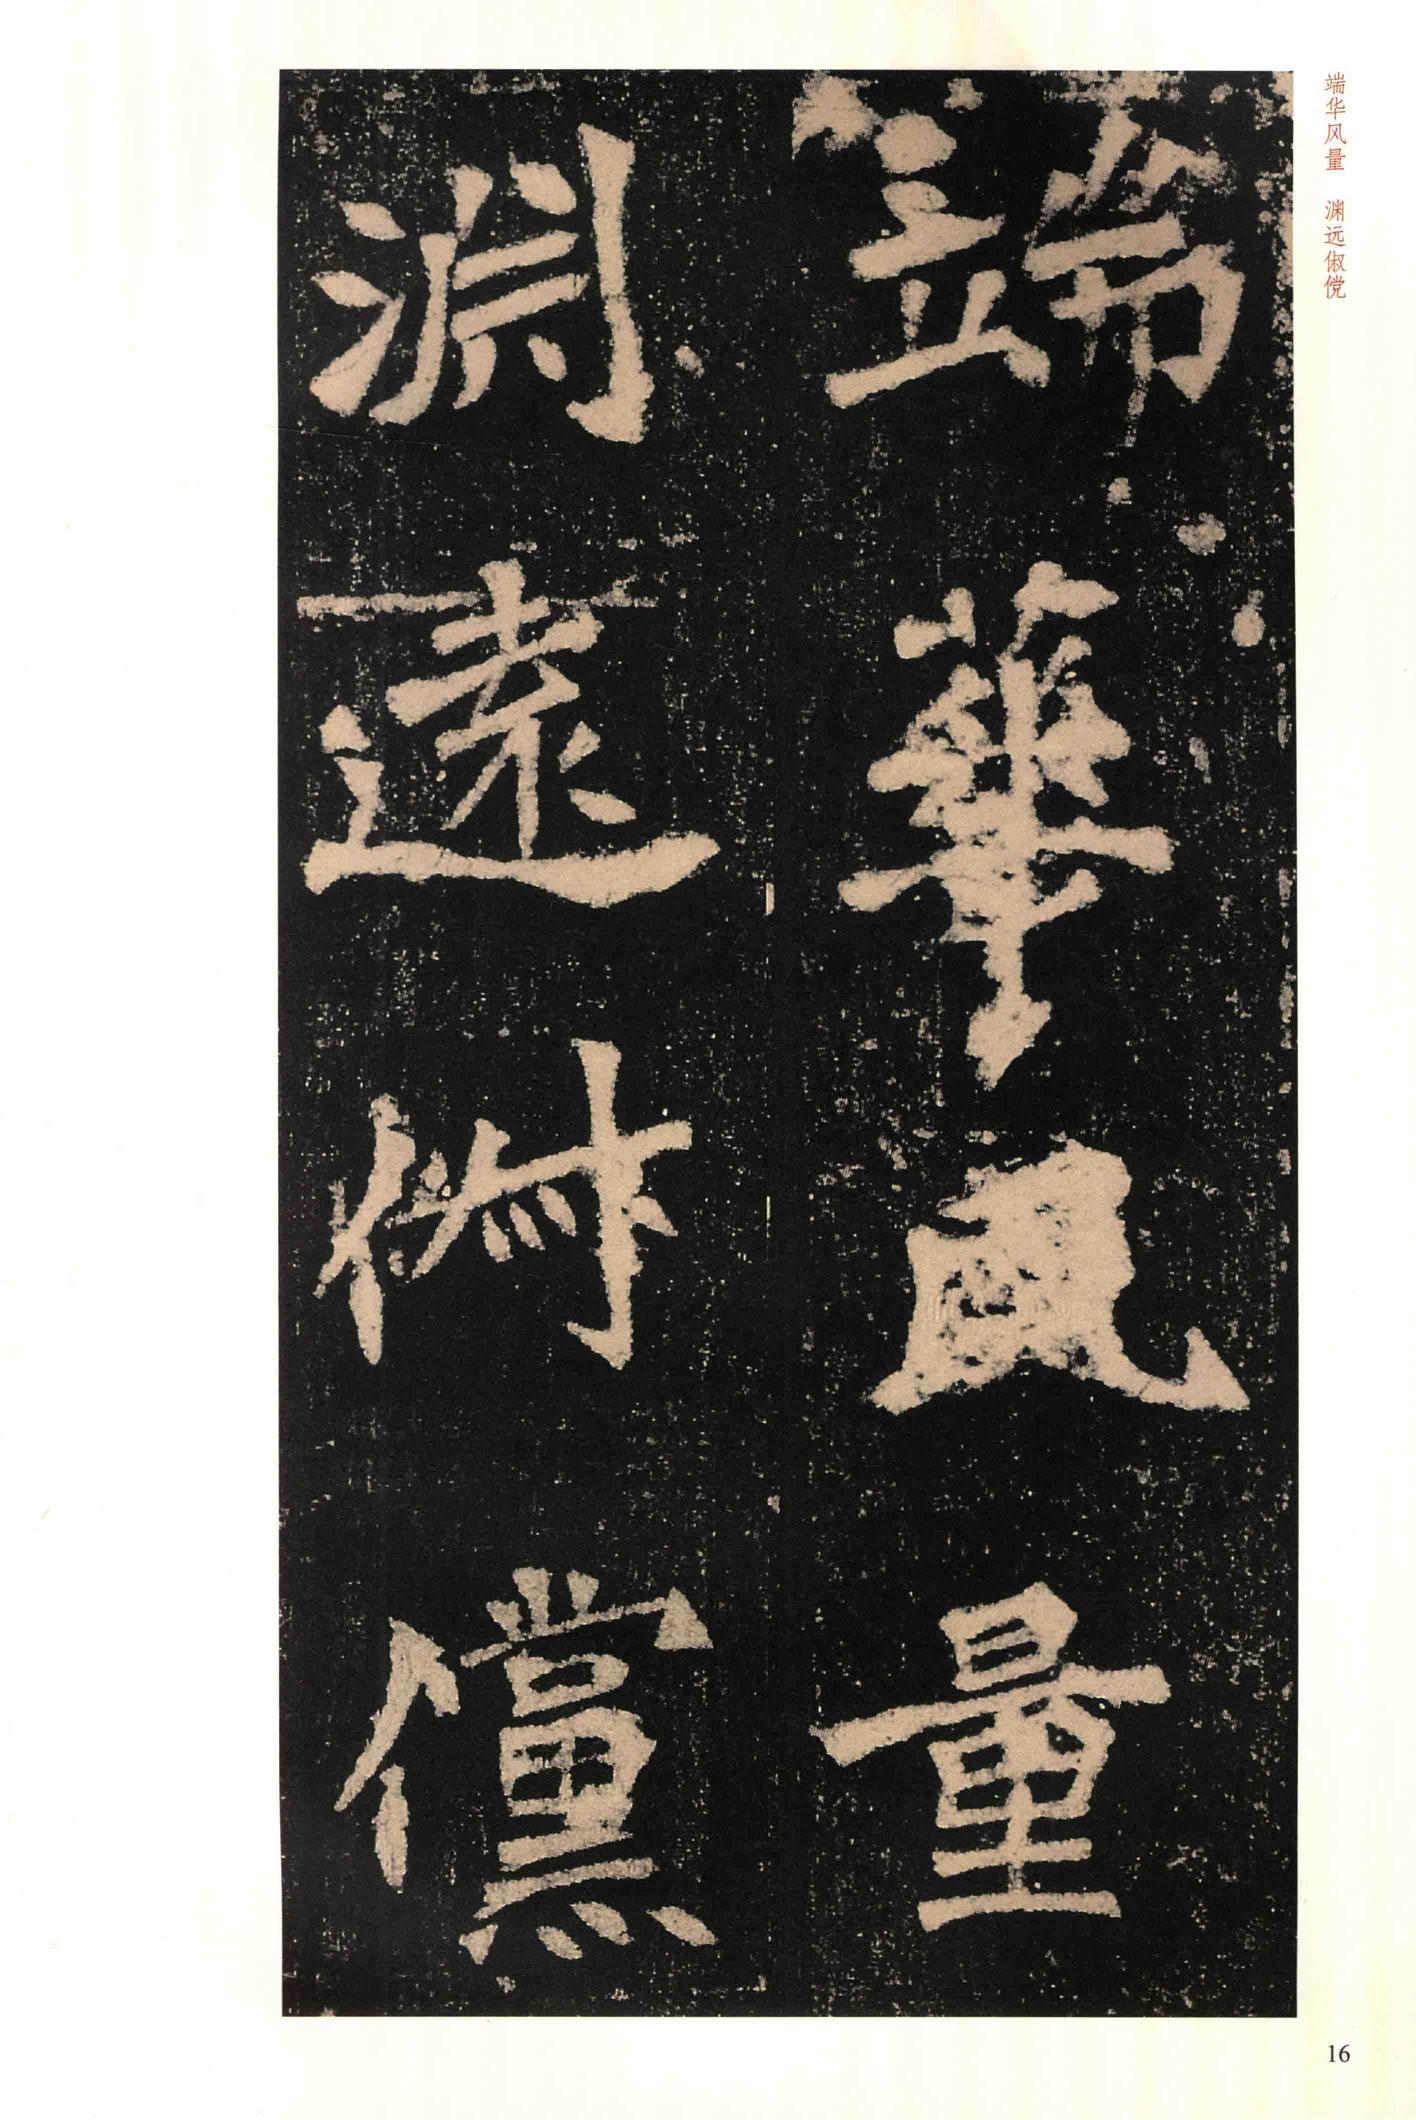 端華風量
淵遠俶儻
端华风量 渊远俶傥
16